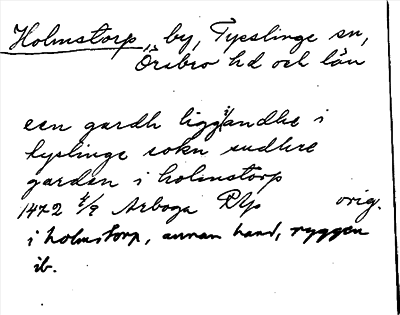 Holmstorp, by, Tysslinge sn,
Örebro hd och län
een gardh liggiandhe i
tyslinge sokn sudhre
garden i holmstorp
1472 8/9 Arboga RAp orig.
i holmstorp, annan hand, ryggen
ib.